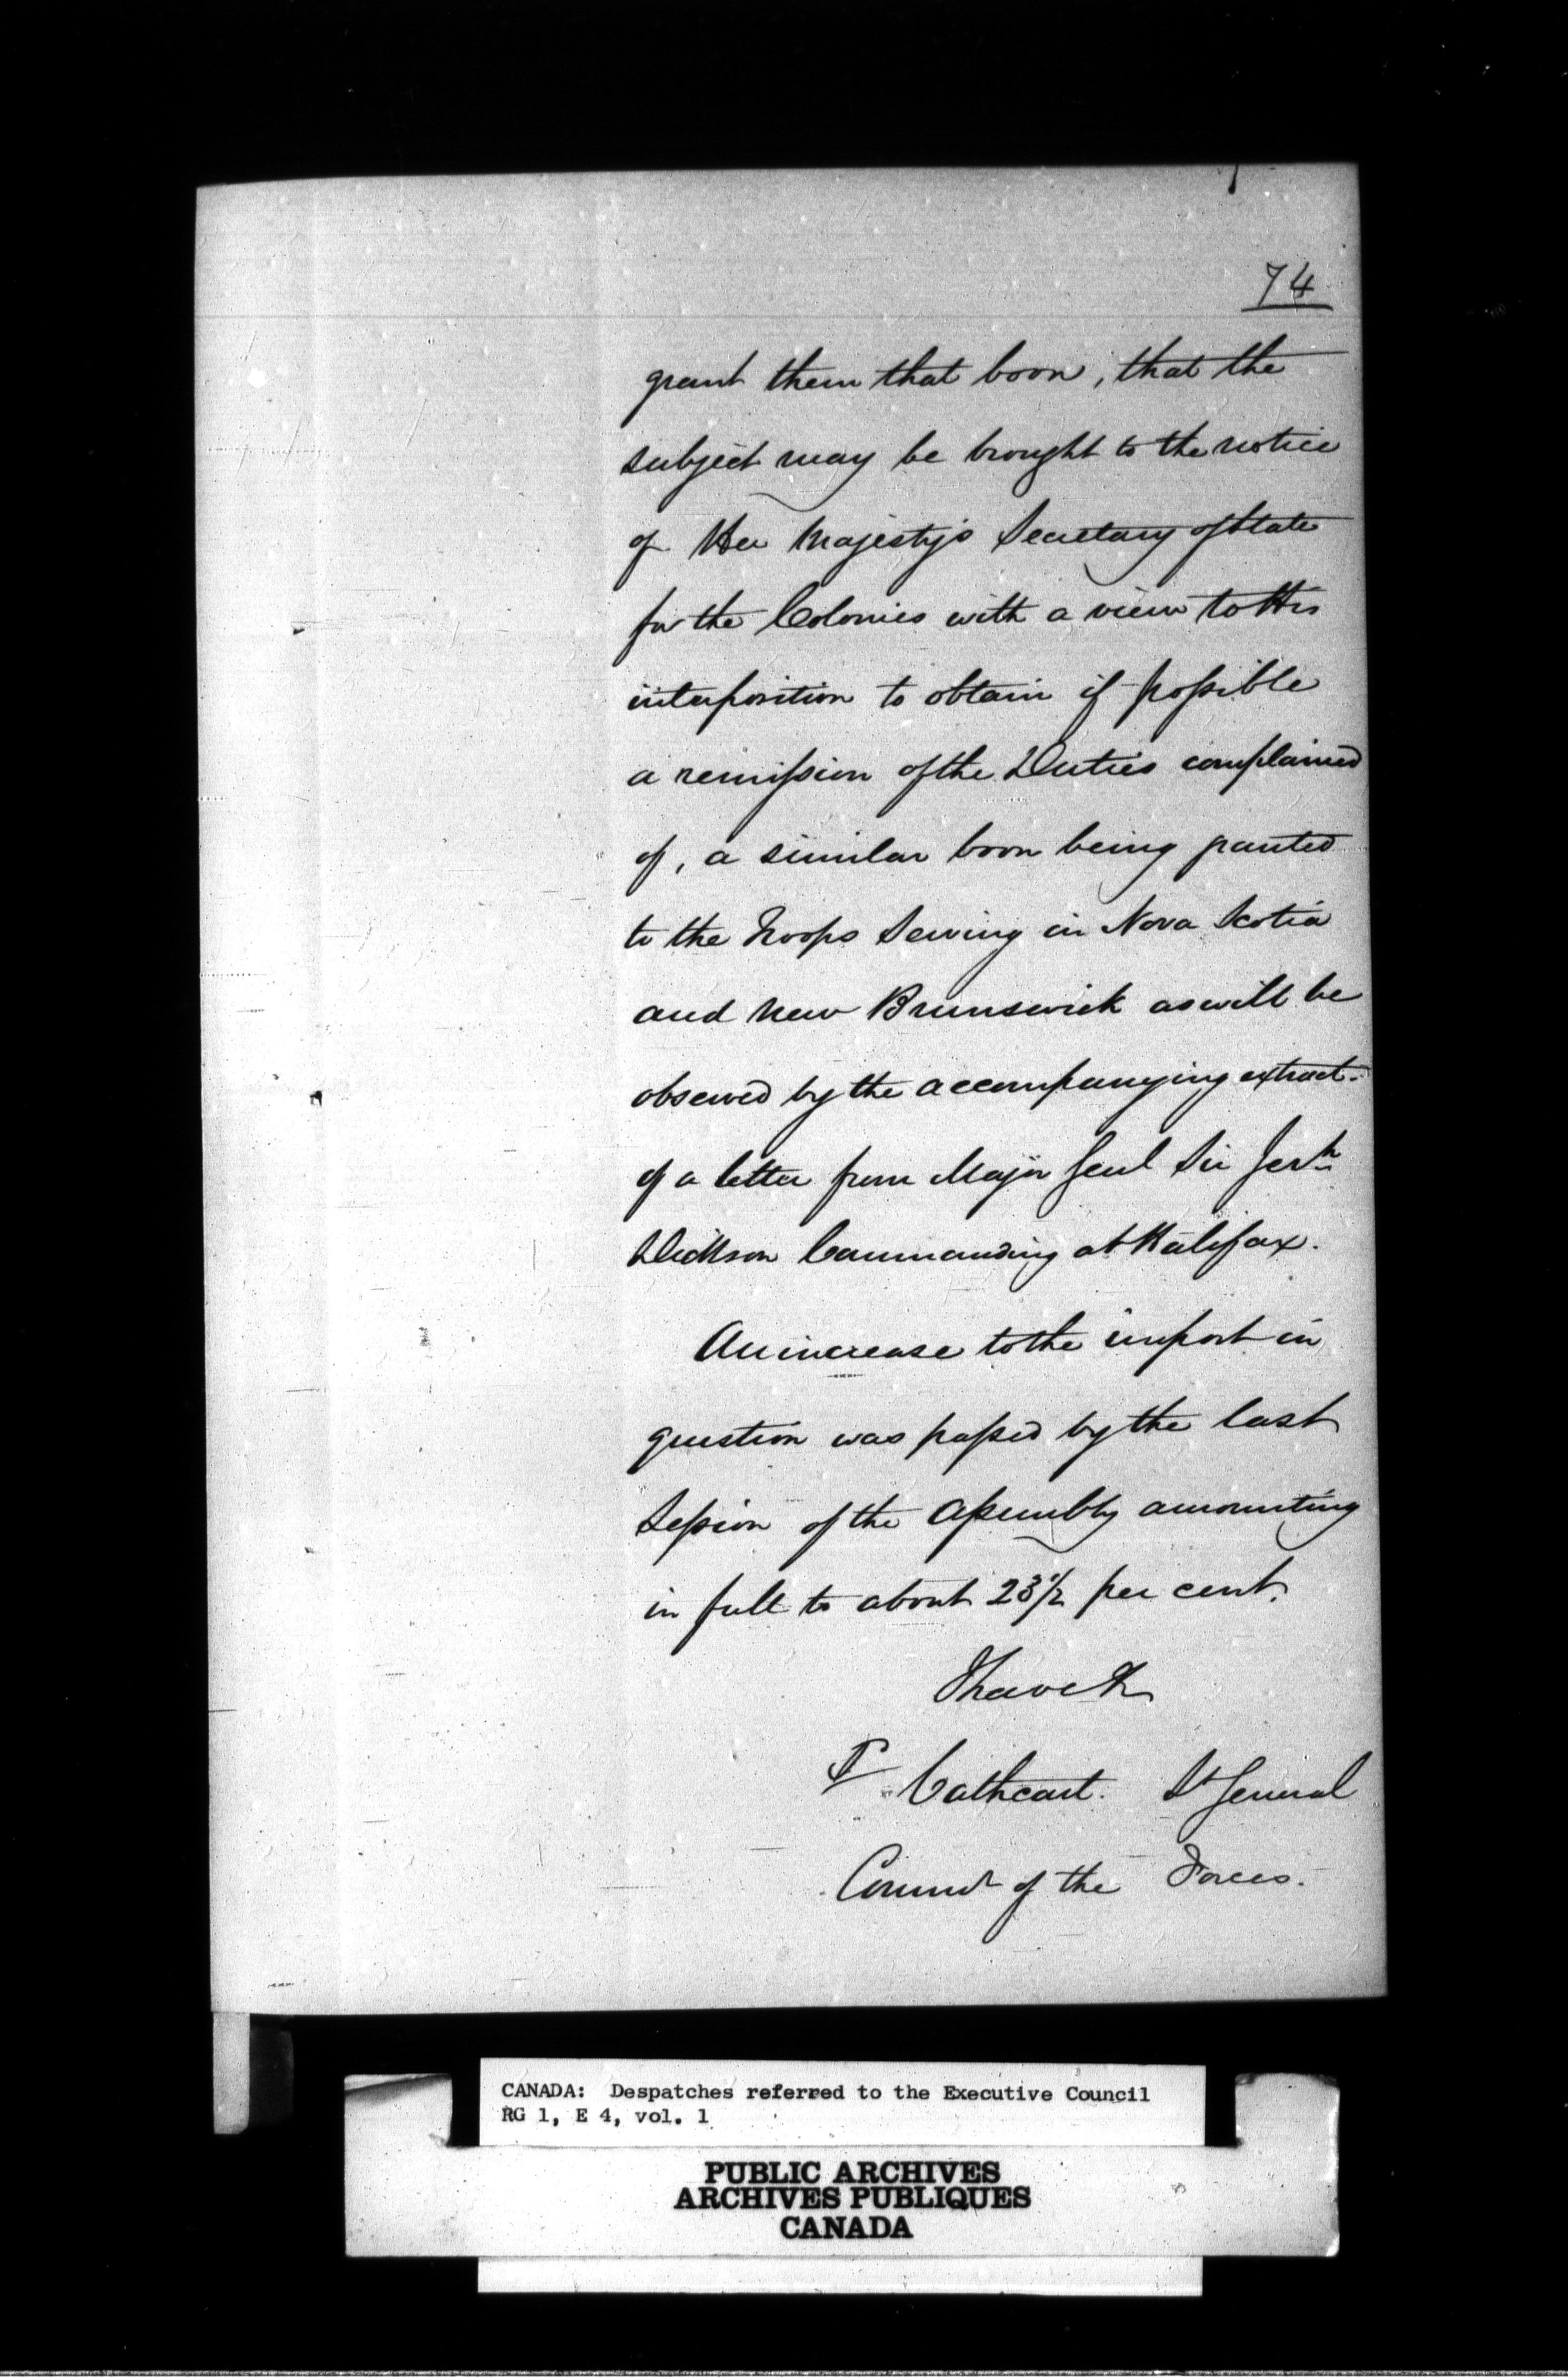 74
grant them that boon, that the
subject may be brought to the notice
of Her Majesty's Secretary of State
for the Colonies with a view to His
interposition to obtain if possible
a remission of the Duties complained
of, a similar boon being granted
to the Troops Serving in Nova Scotia
and New Brunswick as will be
observed by the accompanying extract
of a letter from Major Genl Sir Jerh
Dickson Commanding at Halifax.
An increase to the impost in
question was passed by the last
Session of the Assembly amounting
in full to about 23 1/2 per cent.
I have &c
Cathcart. Lt General
Commr of the Forces.
CANADA: Despatches referred to the Executive Council
RG 1, E 4, vol. 1
PUBLIC ARCHIVES
ARCHIVES PUBLIQUES
CANADA